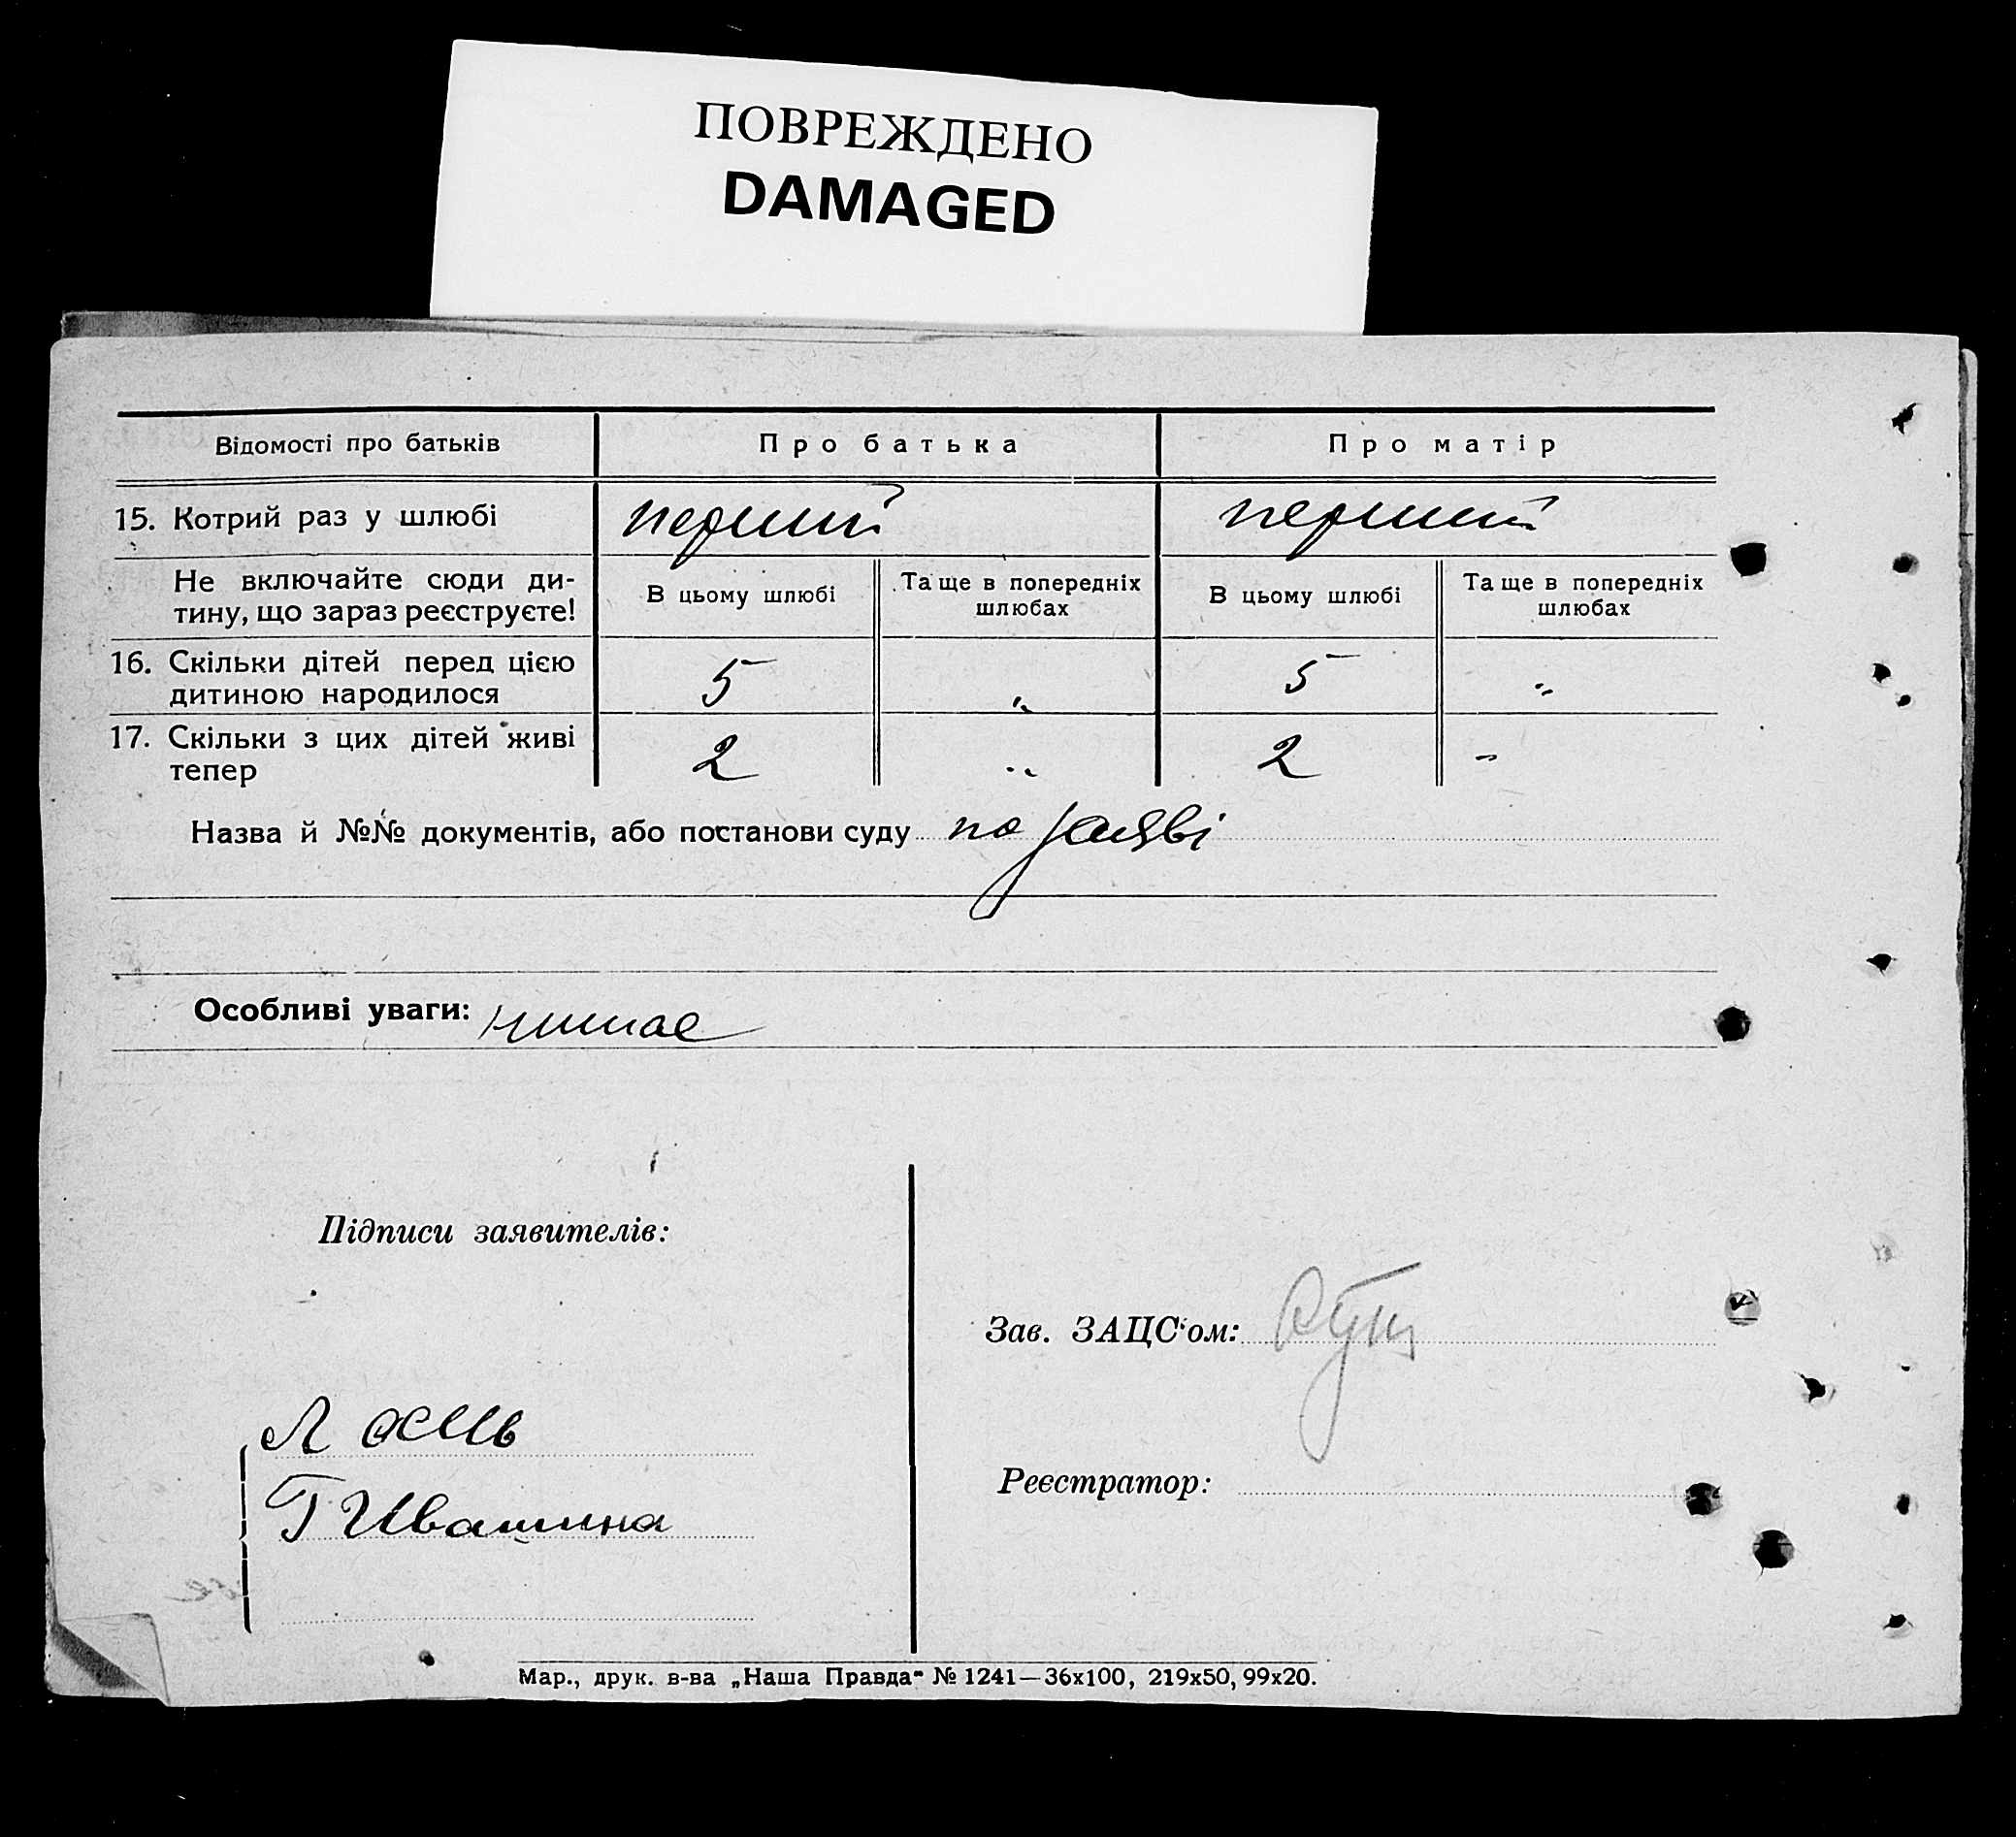 ПОВРЕЖДЕНО
DAMAGED
Відомості про батьків Про батька Про матір
15. Котрий раз у шлюбі перший перший
Не включайте сюди ди-
тину, що зараз реєструєте!
В цьому шлюбі Та ще в попередніх шлюбах В цьому шлюбі Та ще в попередніх шлюбах
16. Скільки дітей перед цією
дитиною народилося 5 „ 5 „
17. Скільки з цих дітей живі
тепер 2 „ 2 „
Назва й №№ документів, або постанови суду по заяві
Особливі уваги: нимає
Підписи заявителів:
Зав. ЗАЦС'ом:
Л
Реєстратор:
Г Ивашина
Мар., друк. в-ва „Наша Правда" № 1241—36х100, 219х50, 99х20.